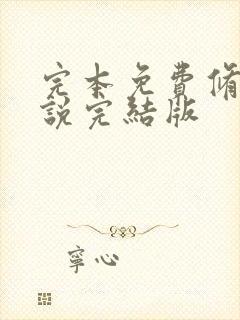 完本免費脩
說完結版
寧心